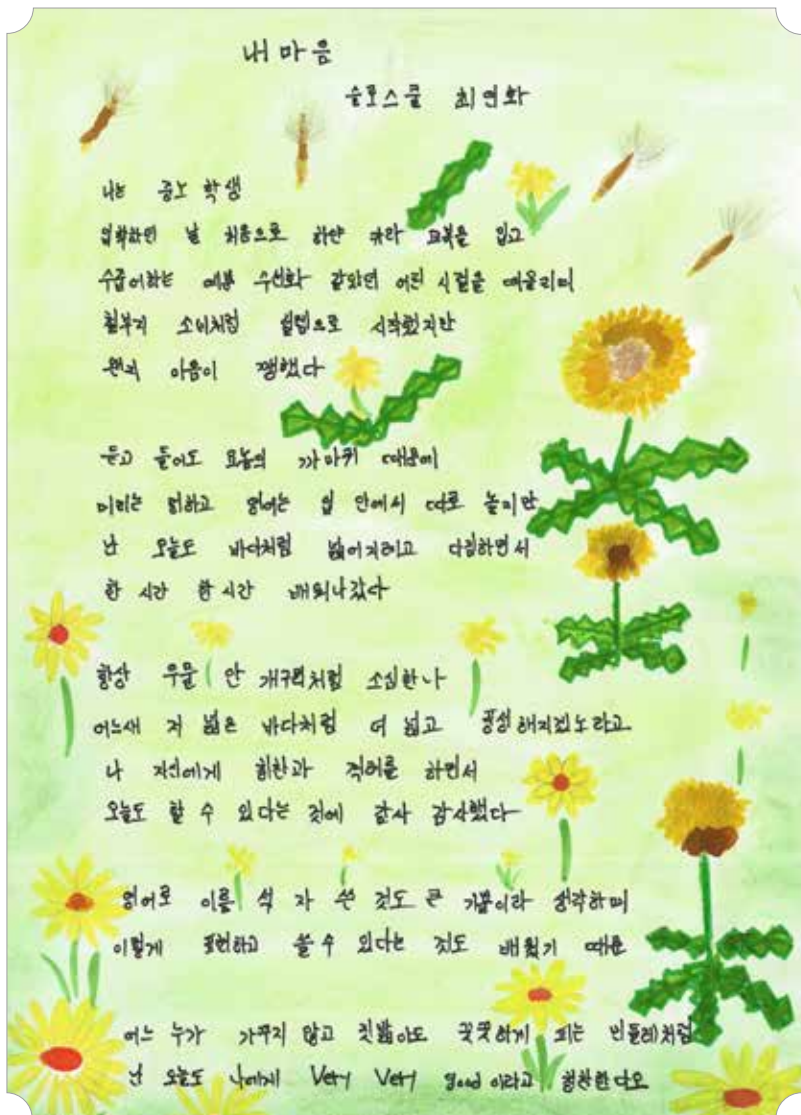 내 마음
슬로스쿨 최연화
나는 중2 학생
입학하던 날 처음으로 하얀 카라 교복을 입고
수줍어하는 예쁜 수선화 같았던 어린 시절을 떠올리며
철부지 소녀처럼 설렘으로 시작했지만
왠지 마음이 찡했다
듣고 들어도 요놈의 까마귀 때문에
머리는 멍하고 영어는 입 안에서 따로 놀지만
난 오늘도 바다처럼 넓어지려고 다짐하면서
한 시간 한 시간 배워나갔다
항상 우물 안 개구리처럼 소심한 나
어느새 저 넓은 바다처럼 더 넓고 풍성해지겠노라고
나 자신에게 칭찬과 격려를 하면서
오늘도 할 수 있다는 것에 감사 감사했다
영어로 이름 석 자 쓴 것도 큰 기쁨이라 생각하며
이렇게 표현하고 쓸 수 있다는 것도 배웠기 때문
어느 누가 가꾸지 않고 짓밟아도 꿋꿋하게 피는 민들레처럼
난 오늘도 나에게 Very Very good 이라고 칭찬한다오